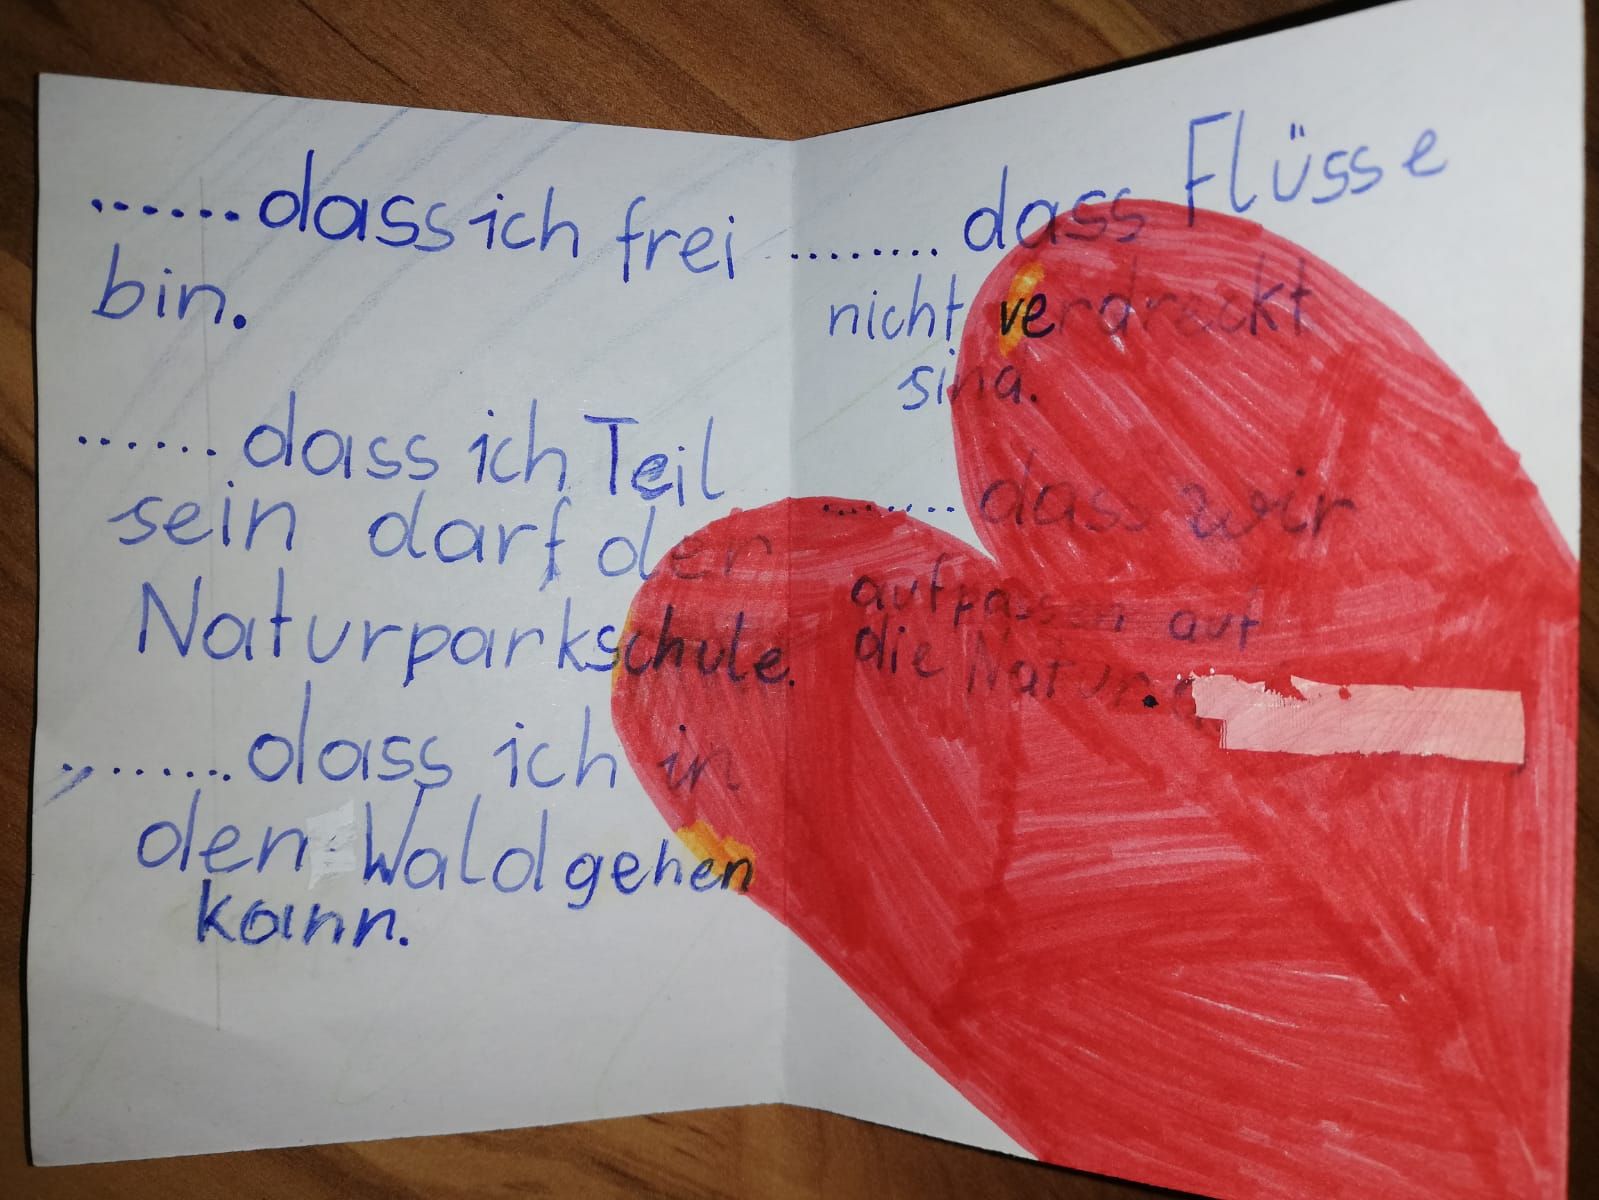 ...... dass ich frei
bin.
...... dass ich Teil
sein darf der
Naturparkschule.
....... dass ich in
den Wald gehen
kann.
........ dass Flüsse
nicht verdreckt
sind.
........ dass wir
aufpassen auf
die Natur.